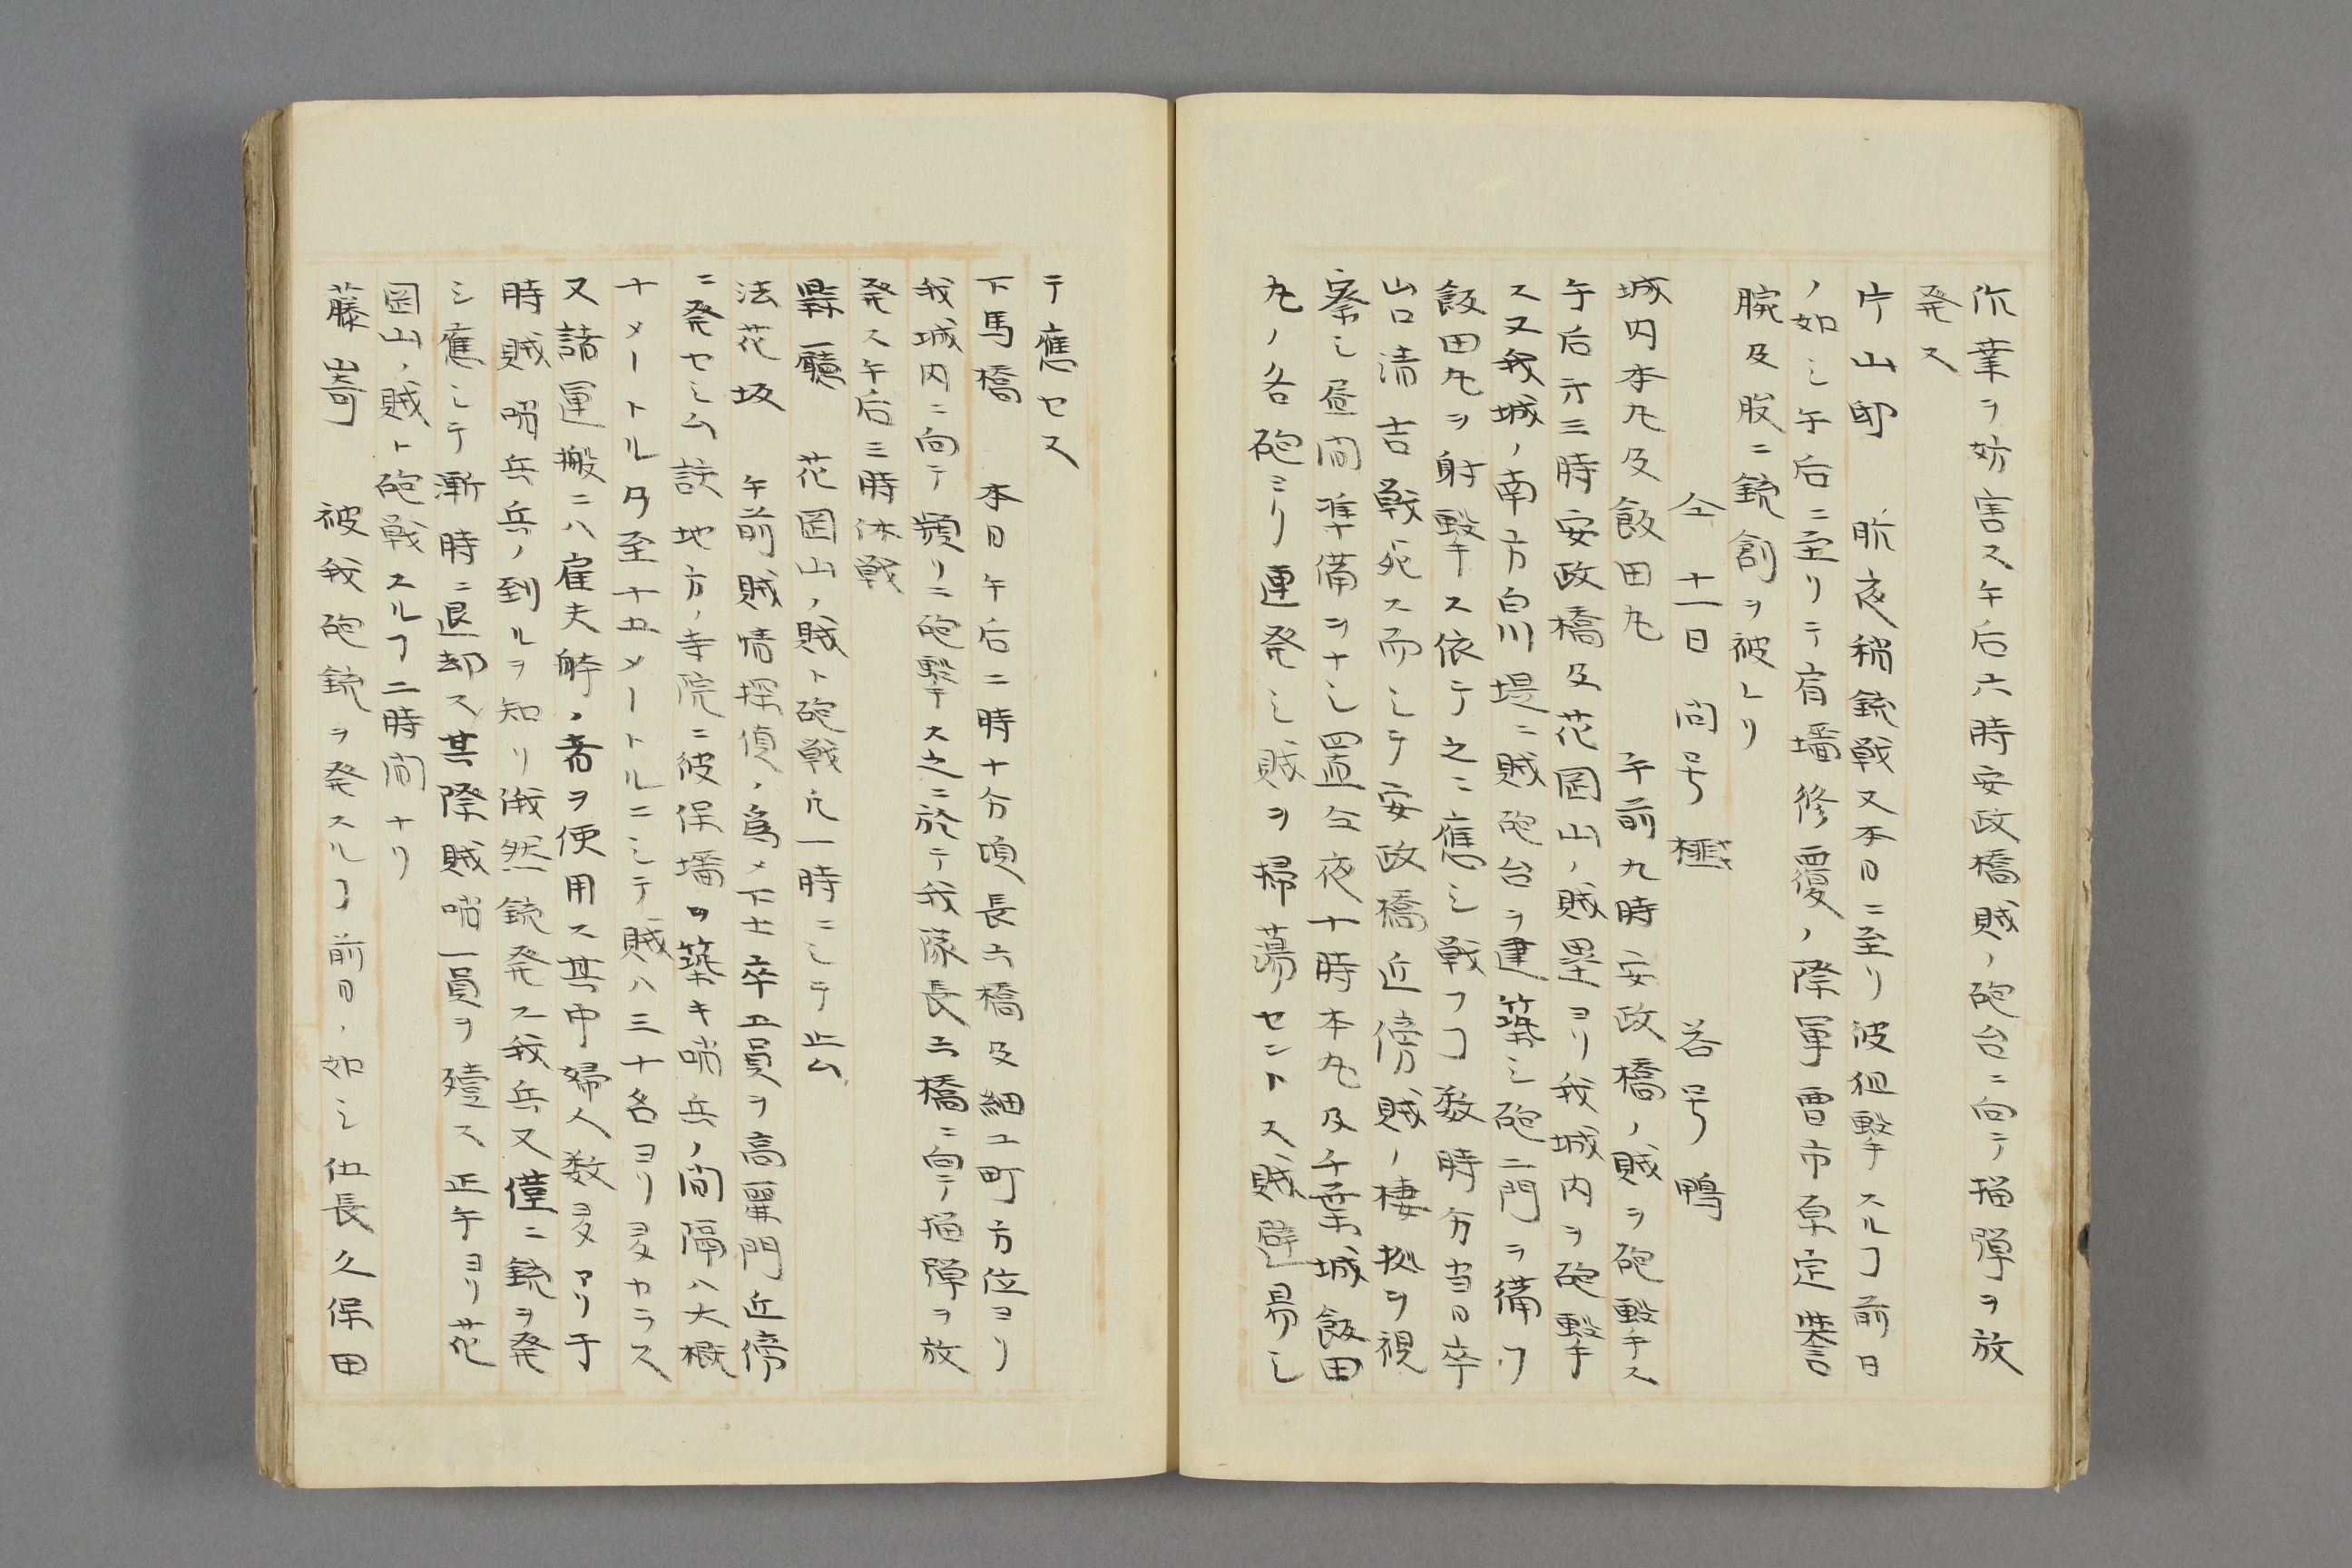 作業ヲ妨害ス午后六時安政橋賊ノ砲台ニ向テ榴弾ヲ放
発ス
片山邸　昨夜稍銃戦又本日ニ至リ彼狙撃スルヿ前日
ノ如シ午后ニ至リテ肩墻修覆ノ際軍曹市原定誉
腕及股ニ銃創ヲ被レリ
仝十一日　問号　槭　　答号　鴨
城内本丸及飯田丸　　午前九時安政橋ノ賊ヲ砲撃ス
午后亦三時安政橋及花岡山ノ賊塁ヨリ我城内ヲ砲撃
ス又我城ノ南方白川堤ニ賊砲台ヲ建築シ砲二門ヲ備ヘ
飯田丸ヲ射撃ス依テ之ニ應シ戦フヿ数時分当日卒
山口清吉戦死ス而シテ安政橋近傍賊ノ棲拠ヲ視
察シ昼間準備ヲナシ置仝夜十時本丸及千葉城飯田
丸ノ各砲ヨリ連発シ賊ヲ掃蕩セントス賊辟易シ
テ應セス
下馬橋　本日午后二時十分頃長六橋及細工町方位ヨリ
我城内ニ向テ頻リニ砲撃ス之ニ於テ我隊長六橋ニ向テ榴弾ヲ放
発ス午后三時休戦
縣廳　花岡山ノ賊ト砲戦凢一時ニシテ止ム
法花坂　午前賊情探偵ノ為メ下士卒五員ヲ高麗門近傍
ニ発セシム該地方ノ寺院ニ彼保墻ヲ築キ哨兵ノ間隔ハ大概
十メートル乃至十五メートルニシテ賊ハ三十名ヨリ多カラス
又諸運搬ニハ雇夫躰ノ者ヲ使用ス其中婦人数多アリ于
時賊哨兵兵ノ到ルヲ知リ俄然銃発ス我兵又僅ニ銃ヲ発
シ應シテ漸時ニ退却ス其際賊哨一員ヲ殪ス正午ヨリ花
岡山ノ賊ト砲戦スルヿ二時間ナリ
藤崎　彼我砲銃ヲ発スルヿ前日ノ如シ伍長久保田